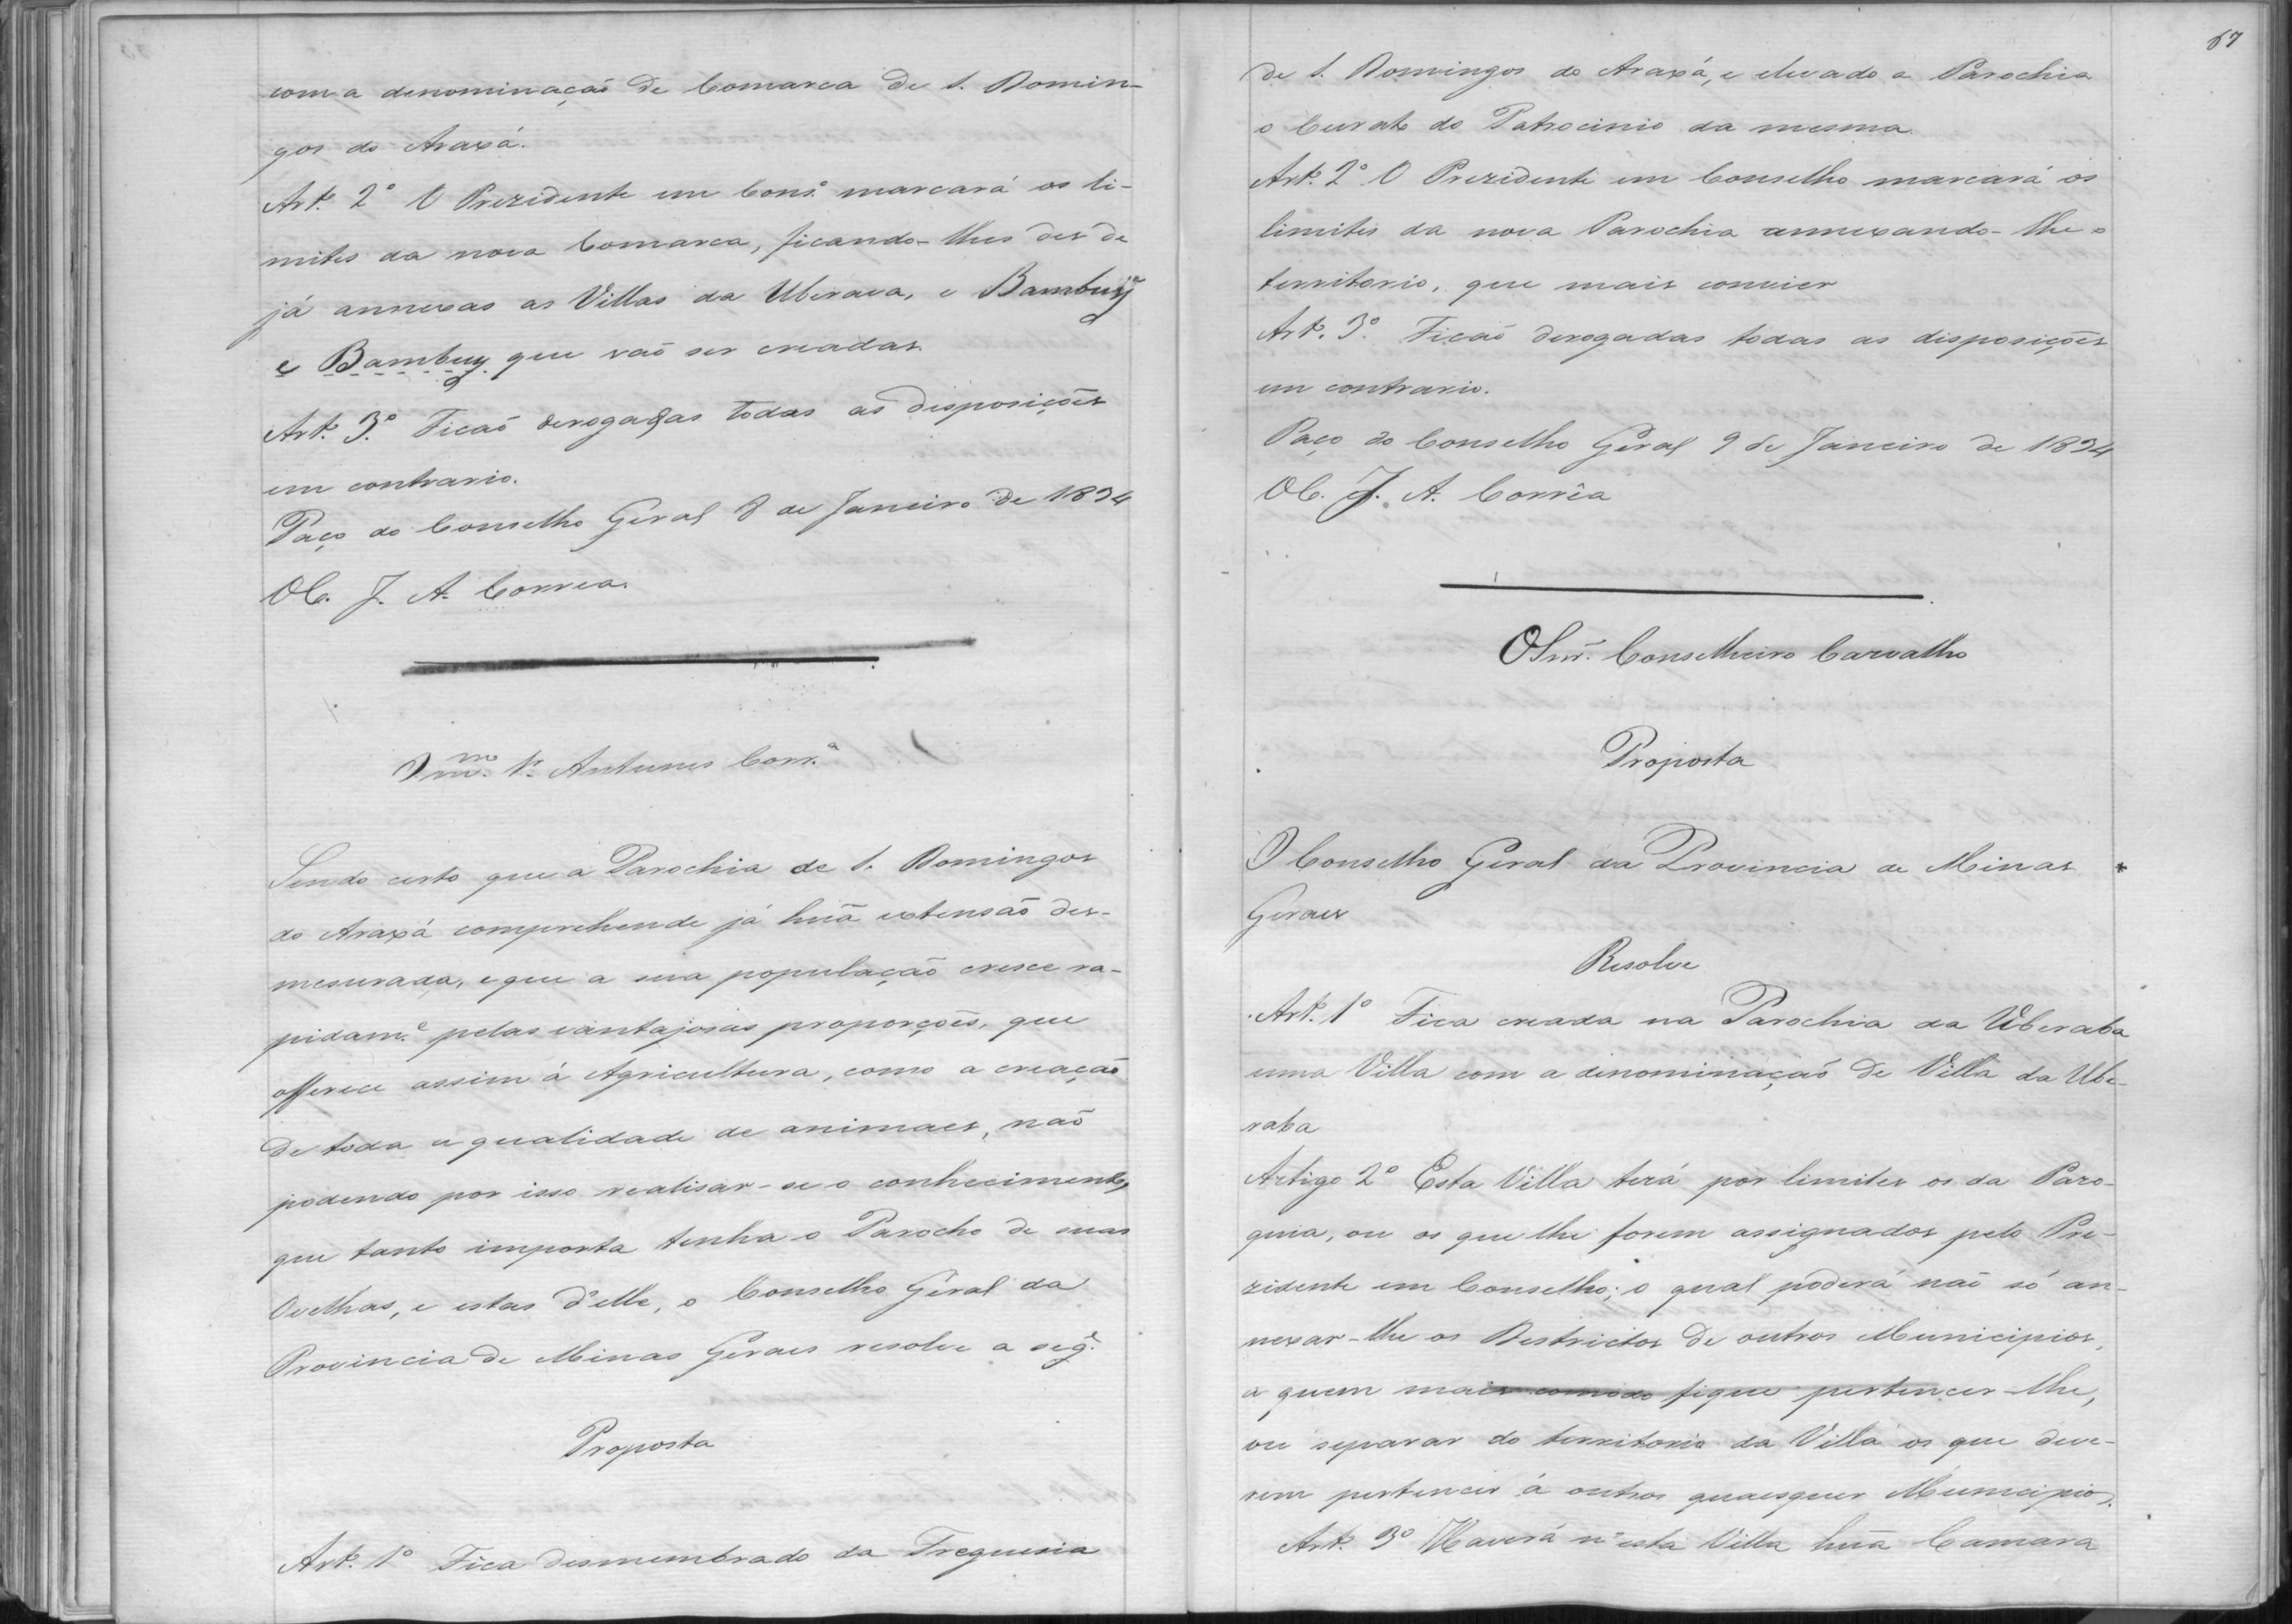 com a denominação de Comarca de S. Domin-
gos do Araxá.
Artº. 2º O Prezidente em Consº. marcará os li-
mites da nova Comarca, ficando-lhes des de
já annexas as Villas da Uberava, e Bambuy
e Bambuy que vaõ ser creadas.
Artº. 3º. Ficaõ derogadas todas as disposições
em contrario.
Paço do Conselho Geral 8 de Janeiro de 1834
OC. J. A. Correa.
Sr. Antunes Corrª
Sendo certo que a Parochia de S. Domingos
do Araxá comprehende já huã extensão des-
mesurada, e que a sua população cresce ra-
pidamᵉ. pelas vantajosas proporções, que
offerece assim á Agricultura, como a creação
de toda a qualidade de animaes, naõ
podendo por isso realisar-se o conhecimento,
que tanto importa tenha o Parocho de suas
Ovelhas, e estas d'elle, o Conselho Geral da
Provincia de Minas Geraes resolve a segᵉ.
Proposta
Artº. 1º Fica desmembrado da Freguesia
67
de S. Domingos do Araxá, e elevado a Parochia
o Curato do Patrocinio da mesma.
Artº. 2º. O Prezidente em Conselho marcará os
limites da nova Parochia annexando-lhe o
territorio, que mais convier
Artº. 3º. Ficaõ derogadas todas as disposições
em contrario.
Paço do Conselho Geral 9 de Janeiro de 1834
OC. J. A. Corrêa
O Snr. Conselheiro Carvalho
Proposta
O Conselho Geral da Provincia de Minas
Geraes
Resolve
Artº. 1º Fica creada na Parochia da Uberaba
uma Villa com a denominaçaõ de Villa da Ube-
raba
Artigo 2º Esta Villa terá por limites os da Paro-
quia, ou os que lhe forem assignados pelo Pre-
zidente em Conselho; o qual poderá naõ só an-
nexar-lhe os Destrictos de outros Municipios,
a quem mais comodo fique pertencer-lhe,
ou separar do territorio da Villa os que deve-
rem pertencer á outros quaesquer Municipios.
Artº. 3º Haverá n'esta Villa huã Camara